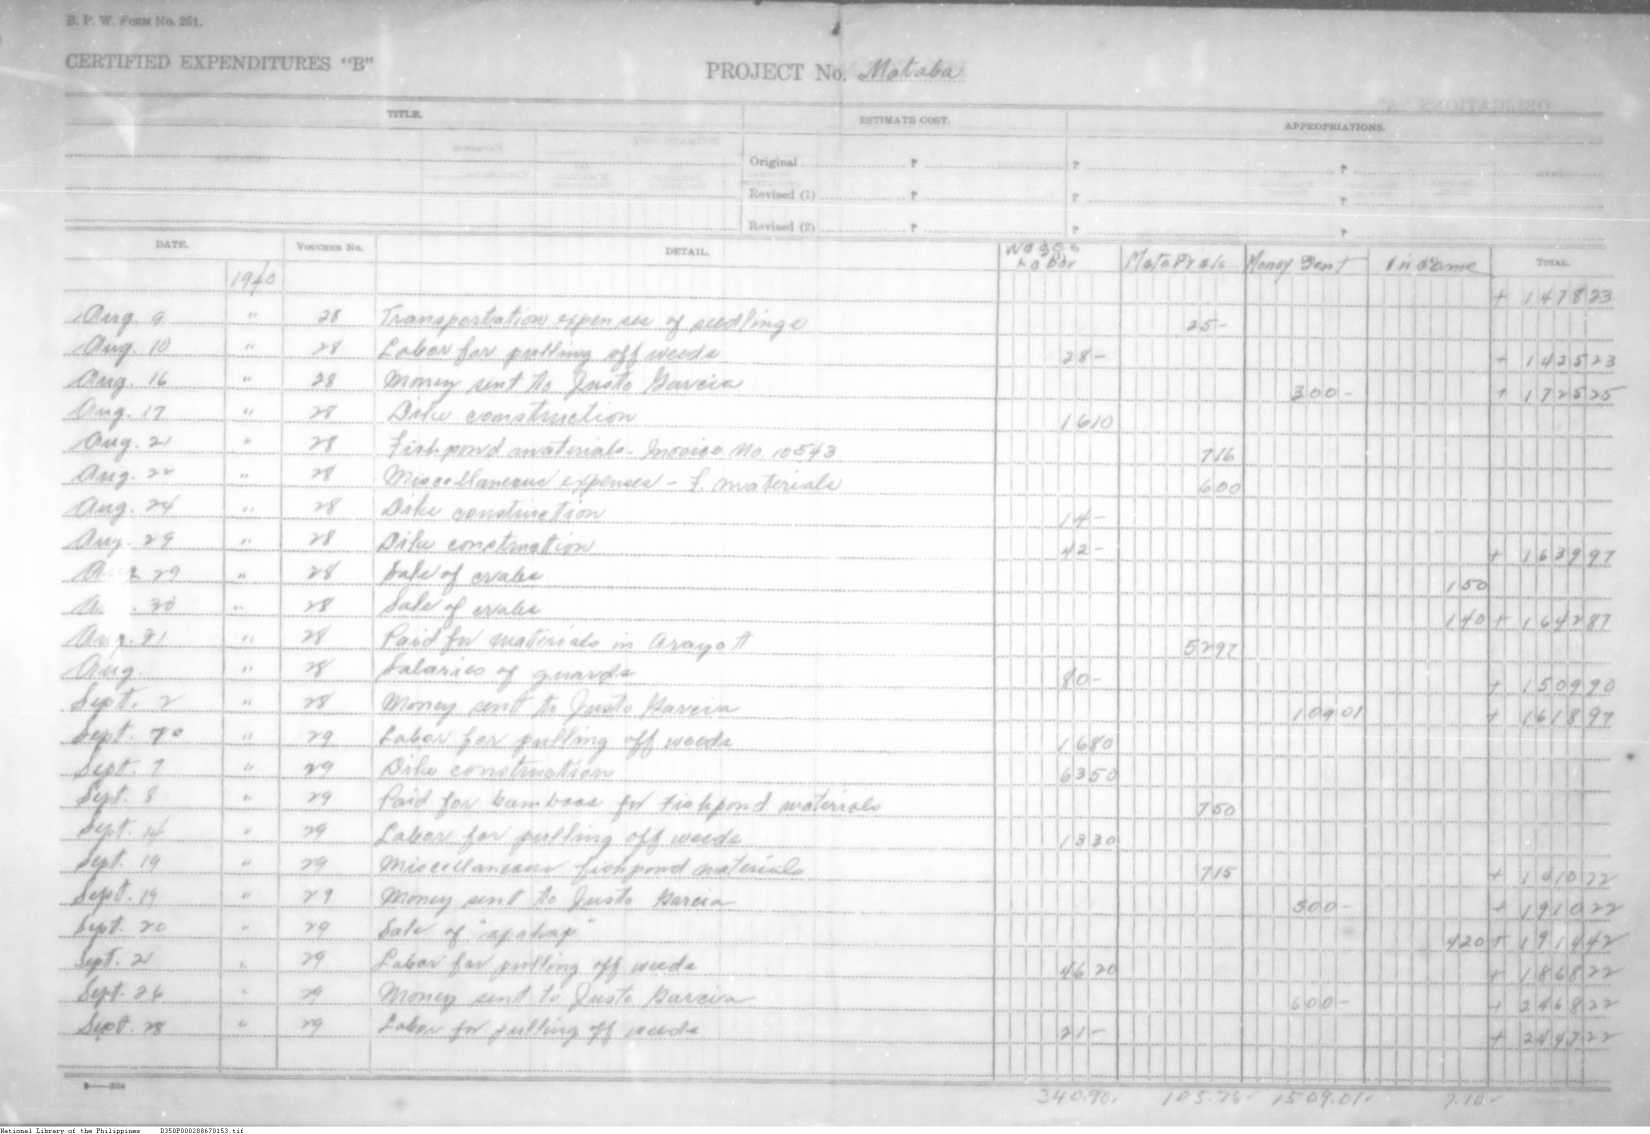 B. P. W. Form No. 251.
CERTIFIED EXPENDITURES "B"
PROJECT No. Mataba
TITLE. ESTIMATE COST. APPROPRIATIONS.
Original ₱ ₱ ₱
Revised (1) ₱ ₱ ₱
Revised (2) ₱ ₱ ₱
DATE. VOUCHER No. DETAIL. Wages Labor Materials Money Sent Income TOTAL.
1940 + 1478 23
Aug. 9 " 28 Transportation expenses of seedlings 25-
Aug. 10 " 28 Labor for pulling off weeds 28- + 1425 23
Aug. 16 " 28 Money sent to Justo Garcia 300- + 1725 25
Aug. 17 " 28 Dike construction 16 10
Aug. 21 " 28 Fishpond materials - Invoice No. 10543 7 16
Aug. 22 " 28 Miscellaneous expenses - f. materials 6 00
Aug. 24 " 28 Dike construction 14-
Aug. 29 " 28 Dike construction 42- + 1639 97
29 " 28 Sale of crabs 1 50
30 " 28 Sale of crabs 1 40 + 1642 87
Aug. 31 " 28 Paid for materials in Arayat 52 97
Aug. " 28 Salaries of guards 80- + 1509 90
Sept. 2 " 28 Money sent to Justo Garcia 109 01 + 1618 97
Sept. 7 " 29 Labor for pulling off weeds 16 80
Sept. 7 " 29 Dike construction 63 50
Sept. 8 " 29 Paid for bamboos for fishpond materials 7 50
Sept. 14 " 29 Labor for pulling off weeds 13 30
Sept. 19 " 29 Miscellaneous fishpond materials 7 15 +
Sept. 19 " 29 Money sent to Justo Garcia 500- + 1910 22
Sept. 20 " 29 Sale of "apahap" 4 20 + 1914 42
Sept. 21 " 29 Labor for pulling off weeds 46 20 + 1868 22
Sept. 26 " 29 Money sent to Justo Garcia 600- + 2468 22
Sept. 28 " 29 Labor for pulling off weeds 21- + 2447 22
340.90 105.78 1509.01 7.10
National Library of the Philippines D350P000208670153.tif